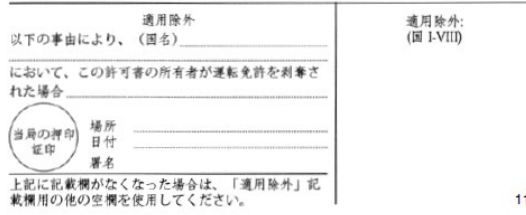 適用除外
以下の事由により、（国名）
において、この許可書の所有者が運転免許を剥奪さ
れた場合
当局の押印
証印
場所
日付
署名
上記に記載欄がなくなった場合は、「適用除外」記
載欄用の他の空欄を使用してください。
適用除外:
(国 I-VIII)
11